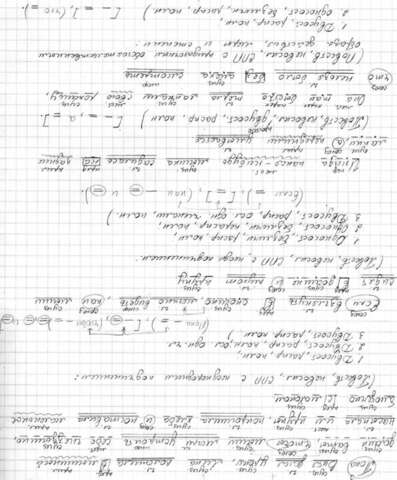 Пока Витя делал уроки, Лена положила в мышиный
домик ваты, чтобы мыши могли устроить себе гнёздышко,
насыпала им крупы, покрошила хлеба и поставила маленькое
блюдечко с молоком.
(Повеств, невоскл, СПП с неоднородным подчинением:
1. Двусост, распр, полн,
2. Двусост, распр, полн, осл. одн. чл.
3. Двусост, распр, полн.)
(Пока – =), [– =, (чтобы – =)
Если взглянуть в окошко, можно видеть, как мыши
сидят в домике и грызут крупу.
(Повеств, невоскл, СПП с неодн подчинением:
1. Односост, безличн, распр, полн,
2. Односост, безличн, нераспр, полн,
3. Двусост, распр, осл. одн. членами, полн.)
(если =), [=], (как – = и =).
Иногда какая-нибудь мышка садилась на задние
лапки, а передними умывается
(Повеств, невоскл, простое двусост, распр, полн) [– =, а =].
Она так быстро тёрла лапками свою рожицу,
что нельзя было без смеха смотреть.
(Повеств, невоскл, СПП с придаточным обстоятельственным
образа действия, меры и степени:
1. Двусост, распр, полн,
2. односост, безличн, распр, полн.) [– =], (что =).